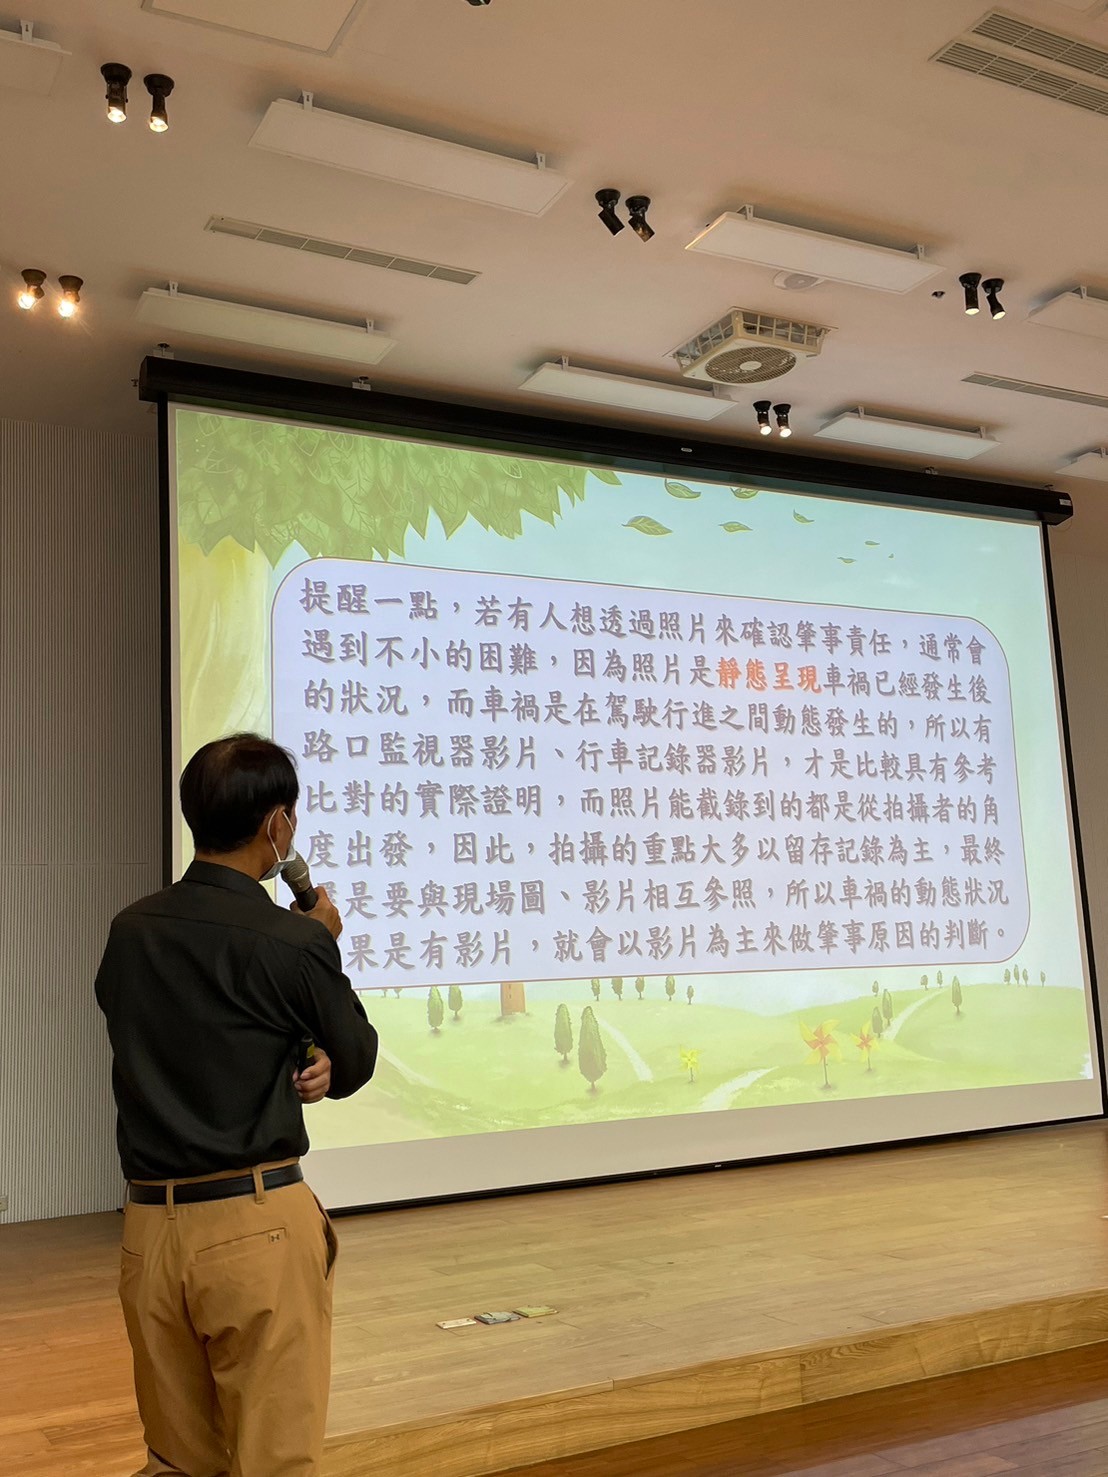 提醒一點，若有人想透過照片來確認肇事責任，通常會
遇到不小的困難，因為照片是靜態呈現車禍已經發生後
的狀況，而車禍是在駕駛行進之間動態發生的，所以有
路口監視器影片、行車記錄器影片，才是比較具有參考
比對的實際證明，而照片能截錄到的都是從拍攝者的角
度出發，因此，拍攝的重點大多以留存記錄為主，最終
是要與現場圖、影片相互參照，所以車禍的動態狀況
果是有影片，就會以影片為主來做肇事原因的判斷。